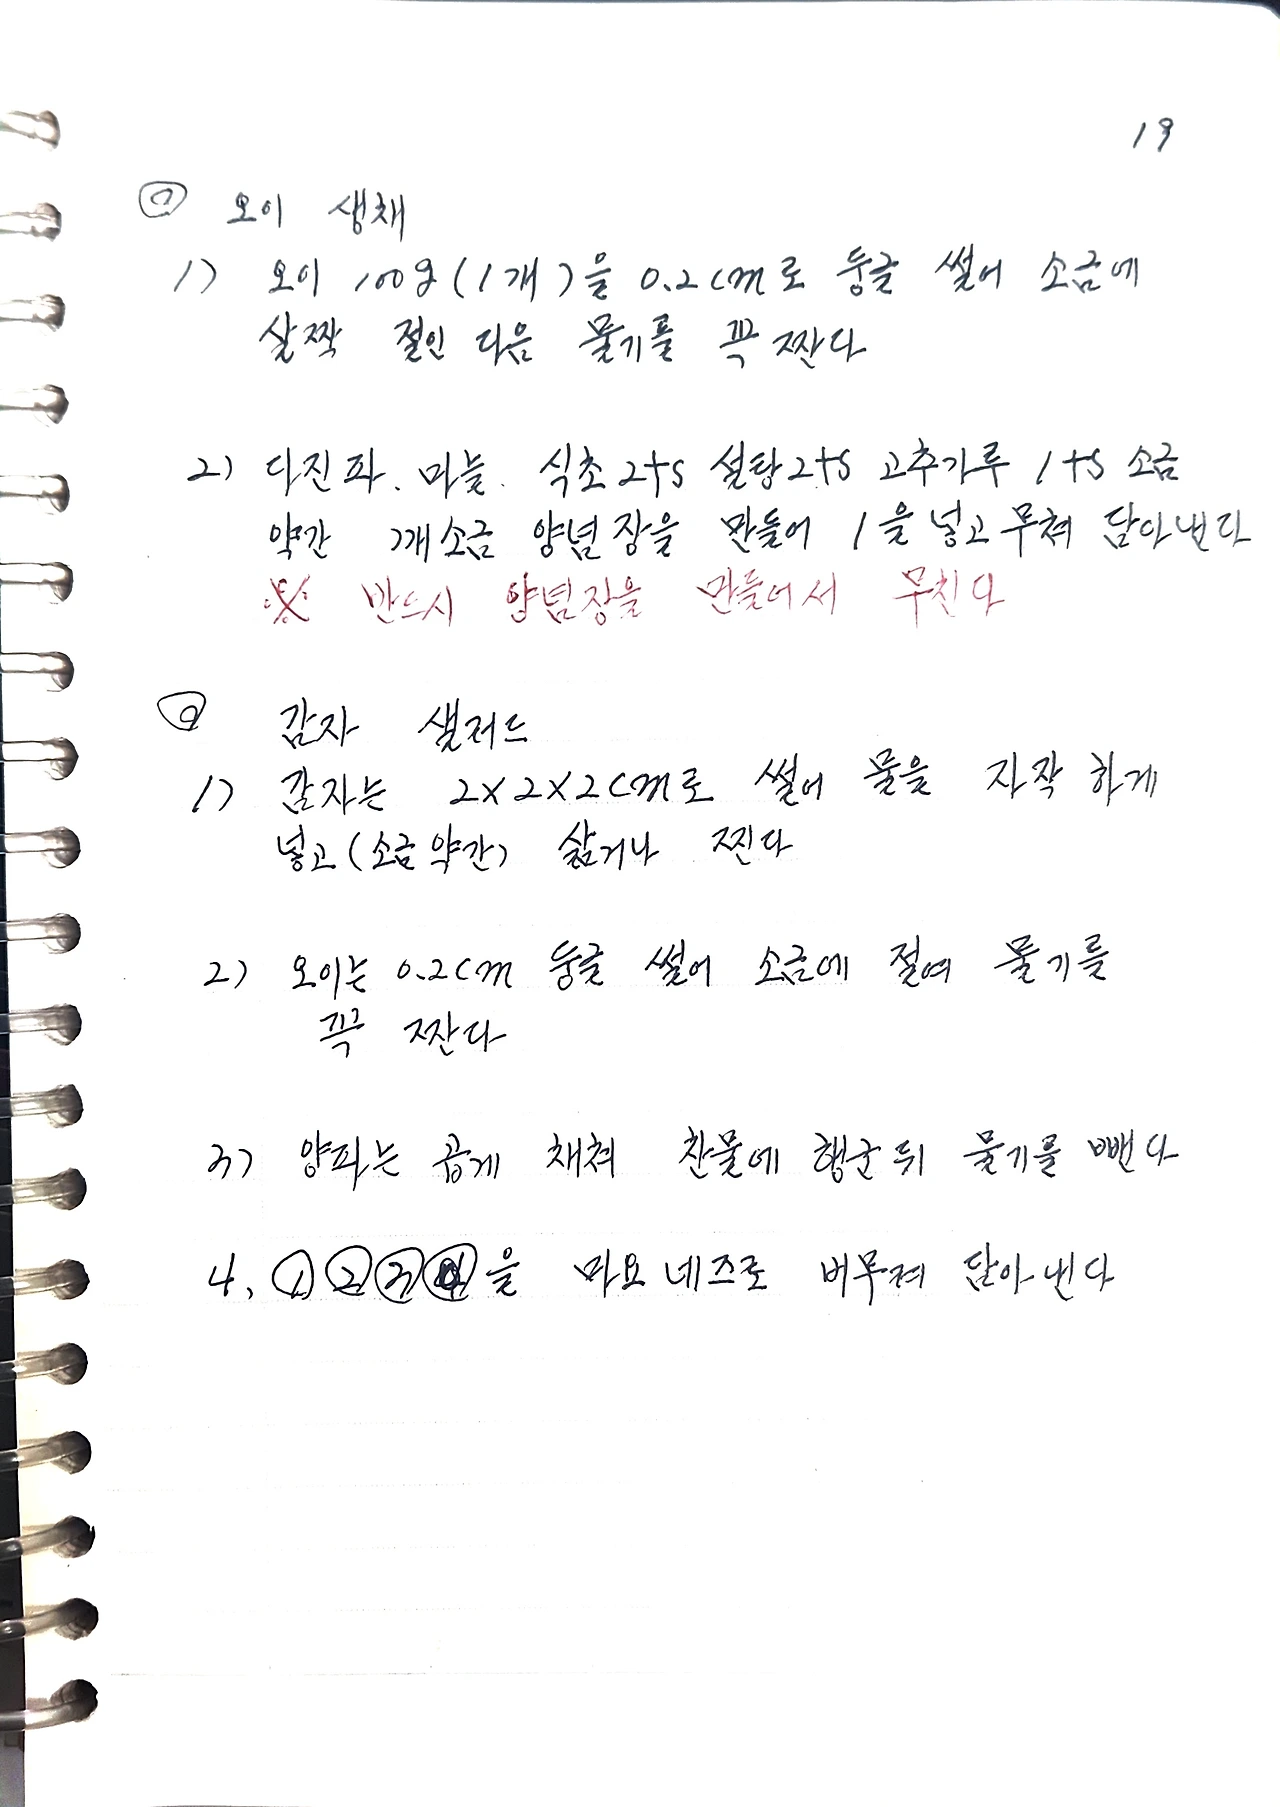 19
ⓐ 오이 생채
1) 오이 100g (1개)을 0.2cm로 둥글 썰어 소금에
살짝 절인 다음 물기를 꼭 짠다
2) 다진파. 마늘. 식초 2ts 설탕 2ts 고추가루 1ts 소금
약간 깨소금 양념장을 만들어 1을 넣고 무쳐 담아낸다
※ 반드시 양념장을 만들어서 무친다
감자 샐러드
1) 감자는 2x2x2cm로 썰어 물을 자작 하게
넣고 (소금 약간) 삶거나 찐다
2) 오이는 0.2cm 둥글 썰어 소금에 절여 물기를
꼭 짠다
3) 양파는 곱게 채쳐 찬물에 행군 뒤 물기를 뺀다
4. ① ② ③을 마요네즈로 버무려 담아낸다